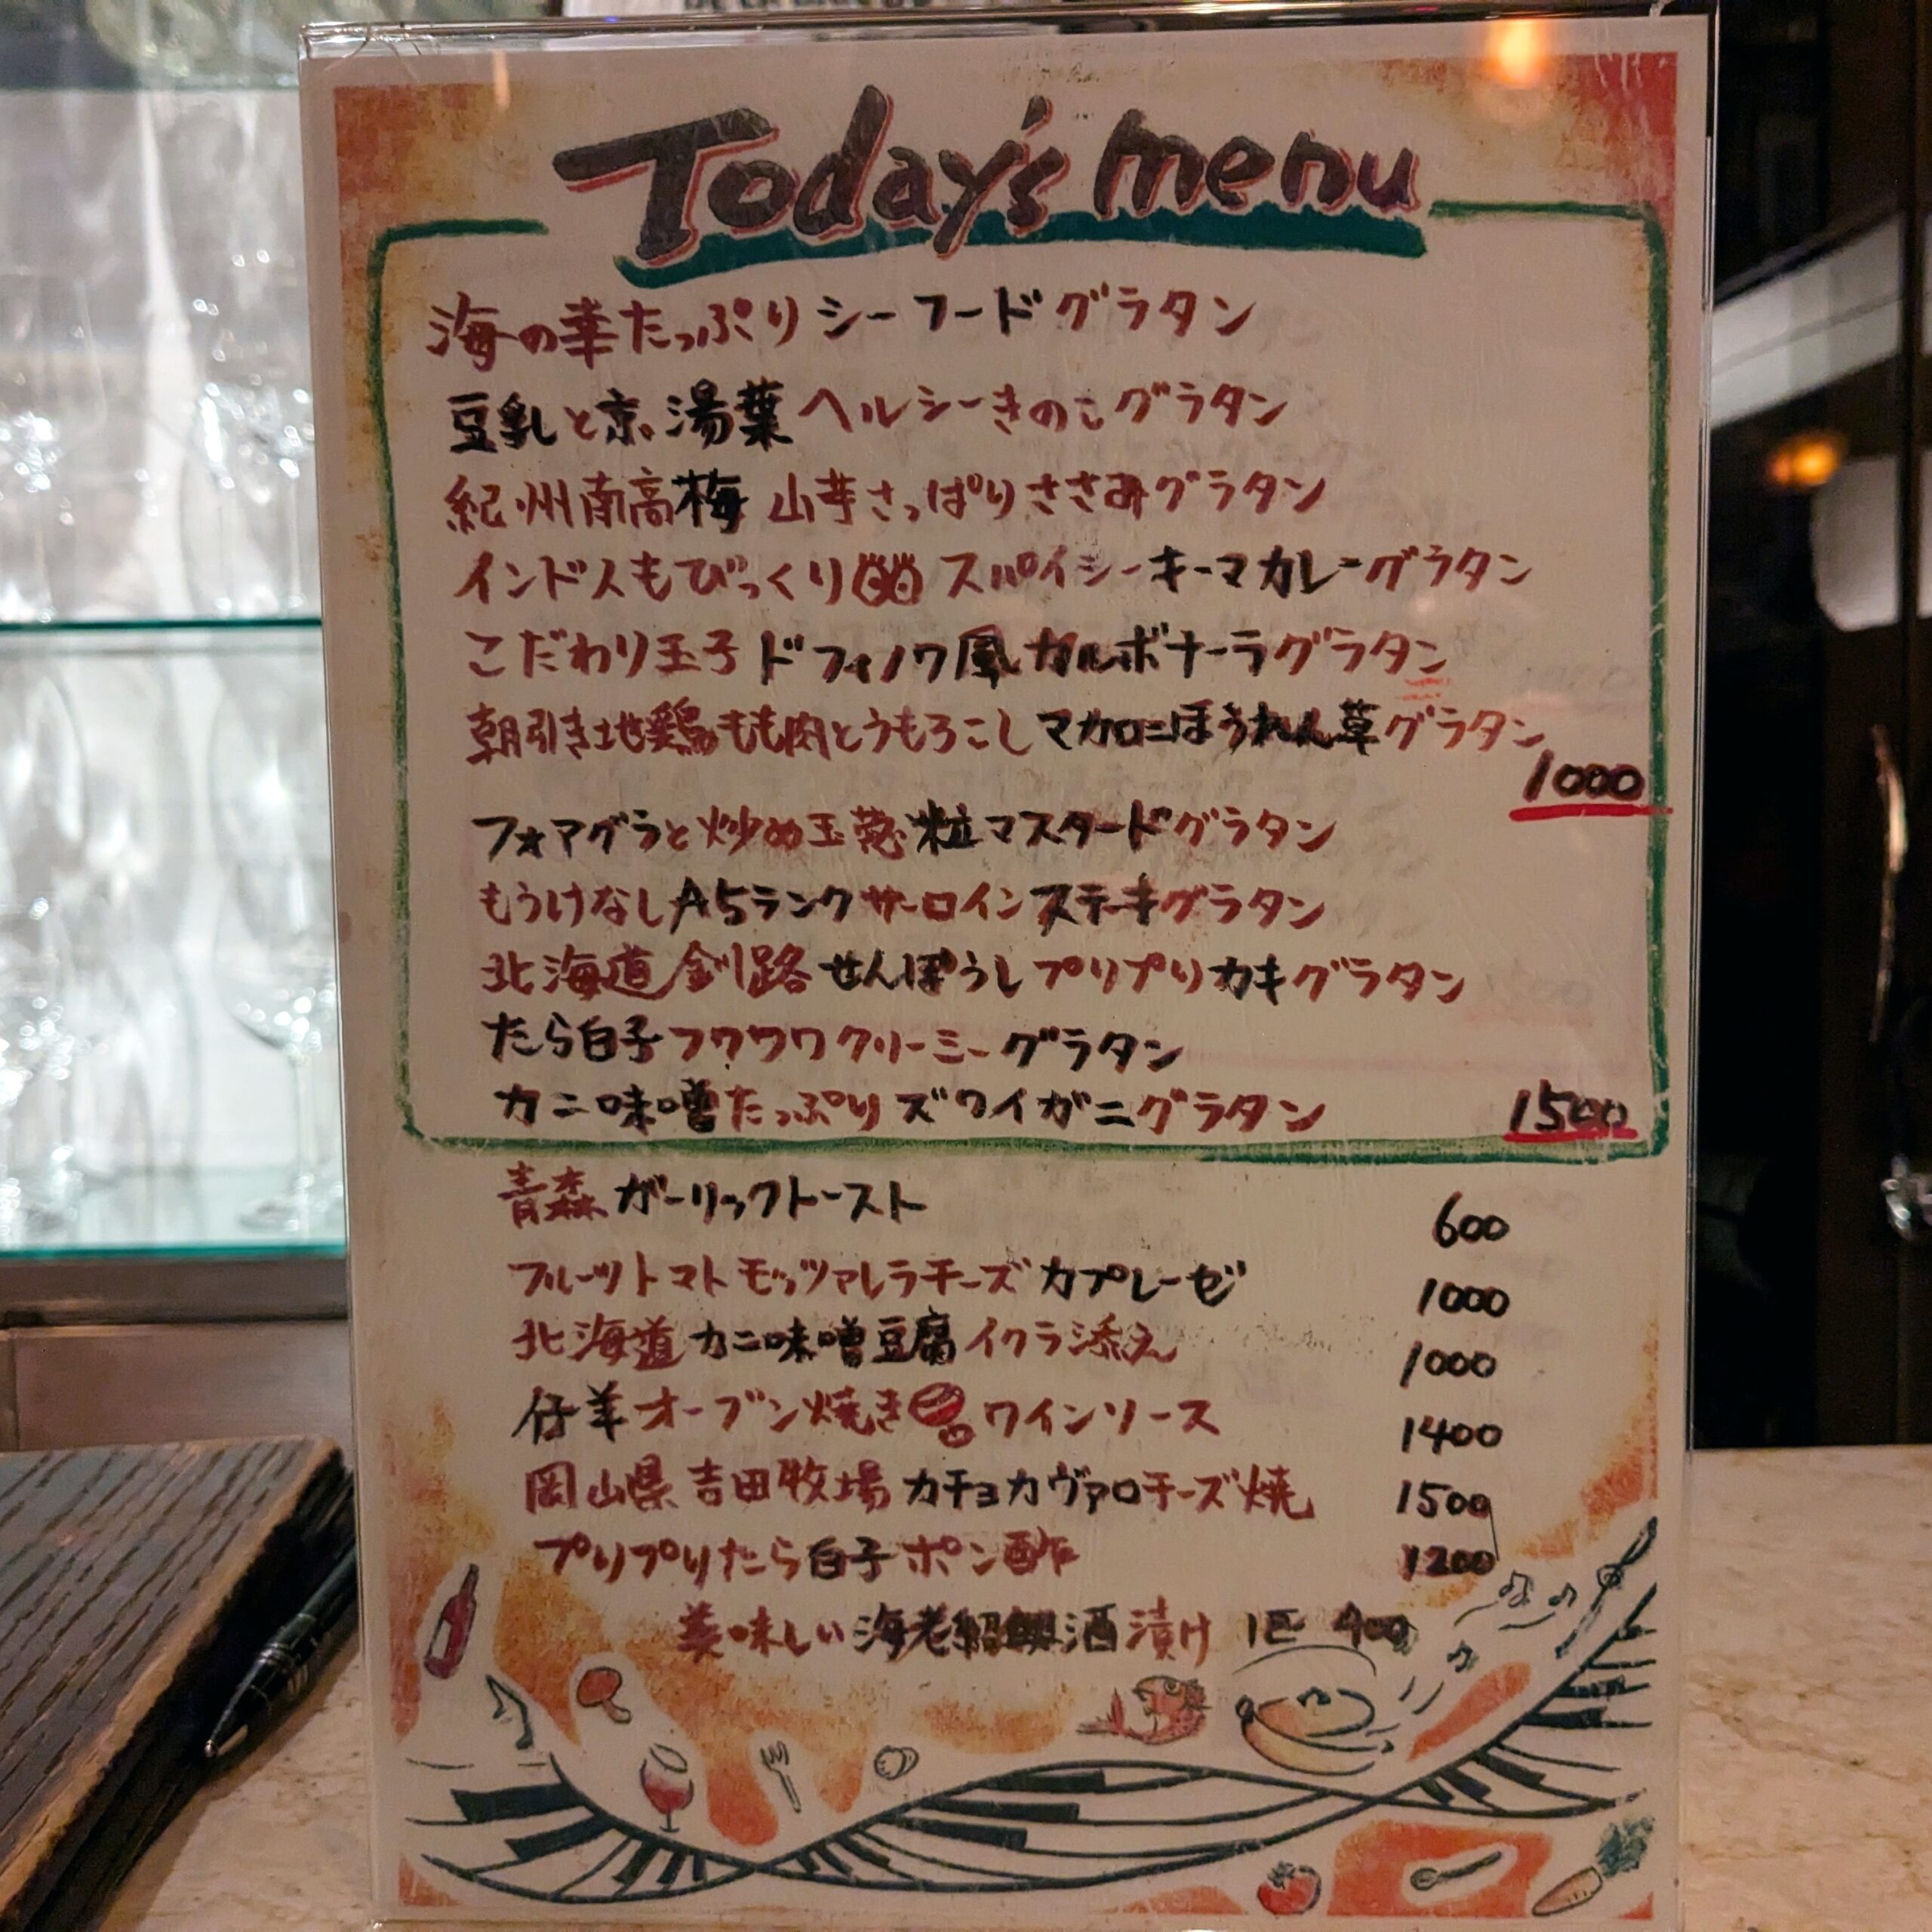 Today's menu
海の華たっぷりシーフードグラタン
豆乳と京湯葉ヘルシーきのこグラタン
紀州南高梅 山芋さっぱりささみグラタン
インド人もびっくり スパイシーキーマカレーグラタン
こだわり玉子ドフィノワ風カルボナーラグラタン
朝引き地鶏もも肉とうもろこしマカロニほうれん草グラタン
1000
フォアグラと炒め玉葱粒マスタードグラタン
もうけなしA5ランクサーロインステーキグラタン
北海道釧路せんぽうしプリプリカキグラタン
たら白子フワフワクリーミーグラタン
カニ味噌たっぷりズワイガニグラタン 1500
青森ガーリックトースト 600
フルーツトマトモッツァレラチーズカプレーゼ 1000
北海道カニ味噌豆腐イクラ添え 1000
仔羊オーブン焼きワインソース 1400
岡山県吉田牧場カチョカヴァロチーズ焼 1500
プリプリたら白子ポン酢 1200
美味しい海老紹興酒漬け 1匹